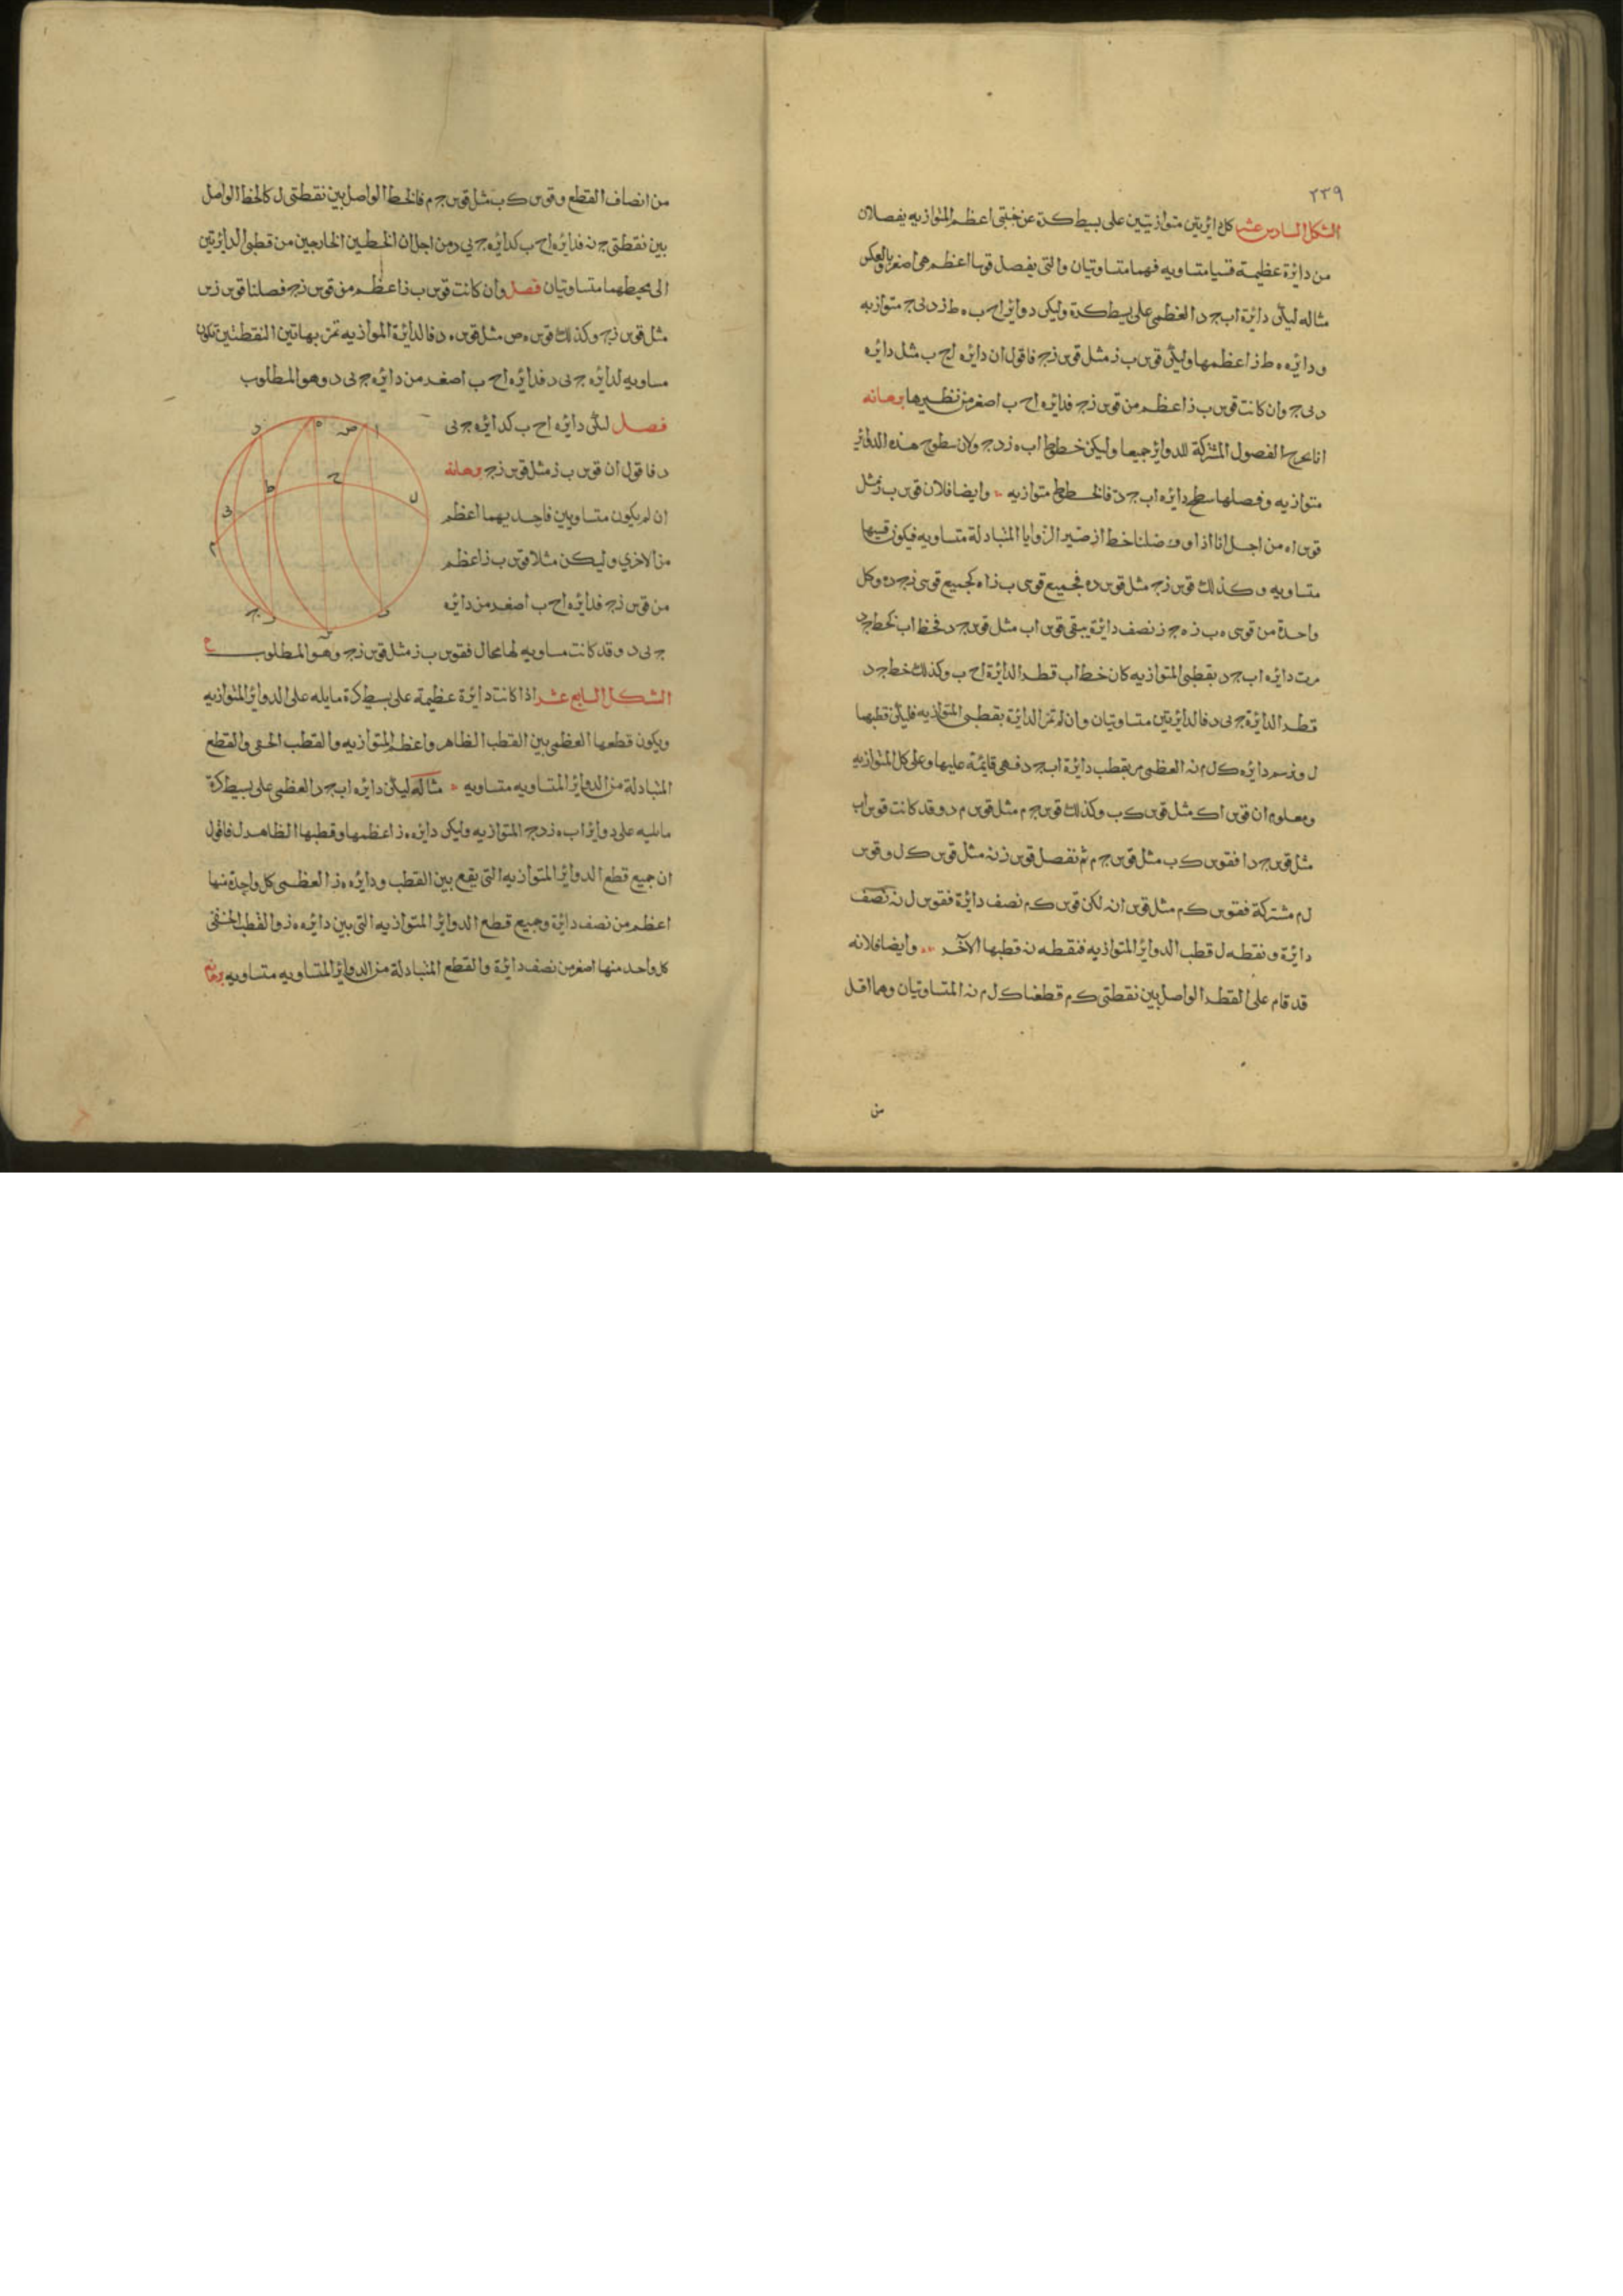 ٢٣٩
الشكل السادس عشر كل دائرتين متوازيتين على بسيط كرة عن جنبتى اعظم المتوازيه يفصلان
من دائرة عظيمة قسيا متساويه فهما متساويتان والتى يفصل قوسا اعظم هى اصغر وبالعكس
مثاله ليكن دائرة اب جد العظمى على بسيط كرة وليكن دوائر اح ب ه ط ز د ى ج متوازيه
ودائره ه ط ز اعظمها وليكن قوس ب ز مثل قوس زج فاقول ان دائره اح ب مثل دائره
د ى ج وان كانت قوس ب ز اعظم من قوس زج فدائره اح ب اصغر من نظيرها برهانه
انا نخرج الفصول المشتركة للدوائر جميعا وليكن خطوط اب ه ز دج ولان سطوح هذه الدوائر
متوازيه وفصلها سطح دائره اب جد فالخطوط متوازيه وايضا فلان قوس ب ز مثل
قوس اه من اجل انا اذا وصلنا خط از صير الزوايا المتبادلة متساويه فيكون قسيها
متساويه وكذلك قوس زج مثل قوس ده فجميع قوسى ب ز اه كجميع قوسى زج ده وكل
واحدة من قوسى ه ب ز ه ج ز نصف دائرة يبقى قوس اب مثل قوس جد فخط اب كخط جد
مرت دائره اب جد بقطبى المتوازيه كان خط اب قطر الدائرة اح ب وكذلك خط جد
قطر الدائرة ج ى د فالدائرتين متساويتان وان لم تمر الدائرة بقطبى المتوازيه فليكن قطبها
ل ونرسم دائره ك ل م نه العظمى تمر بقطب دائرة اب جد فهى قائمة عليها وعلى كل المتوازيه
ومعلوم ان قوس اك مثل قوس ك ب وكذلك قوس ج م مثل قوس م د وقد كانت قوس اب
مثل قوس جد افقوس ك ب مثل قوس ج م ثم نفصل قوس ز نه مثل قوس ك ل وقوس
ل م مشتركة فقوس ك م مثل قوس ل نه لكن قوس ك م نصف دائرة فقوس ل نه نصف
دائرة ونقطه ل قطب الدوائر المتوازيه فنقطه نه قطبها الآخر وايضا فلانه
قد قام على القطر الواصل بين نقطتى ك م قطعتا ك ل م نه المتساويتان وهما اقل
من
من انصاف القطع وقوس ك ب مثل قوس ج م فالخط الواصل بين نقطتى ل ك الخط الواصل
بين نقطتى ج نه فدائره اح ب كدائره ج ى د من اجل ان الخطين الخارجين من قطبى الدائرتين
الى محيطهما متساويتان فصل وان كانت قوس ب ز اعظم من قوس زج فصلنا قوس ز س
مثل قوس زج وكذلك قوس ه ص مثل قوس ه د فالدائرة الموازيه تمر بهاتين النقطتين تكون
مساويه لدائره ج ى د فدائره اح ب اصغر من دائره ج ى د وهو المطلوب
فصل ليكن دائره اح ب كدائره ج ى
د فاقول ان قوس ب ز مثل قوس زج برهانه
ان لم يكون متساويين فاحديهما اعظم
من الاخرى وليكن مثلا قوس ب ز اعظم
من قوس زج فدائره اح ب اصغر من دائره
ج ى د وقد كانت مساويه لها محال فقوس ب ز مثل قوس زج وهو المطلوب
الشكل السابع عشر اذا كانت دائرة عظيمة على بسيط كرة مايله على الدوائر المتوازيه
ويكون قطعها العظمى بين القطب الظاهر واعظم المتوازيه والقطب الخفى والقطع
المتبادلة من الدوائر المتساويه متساويه مثاله ليكن دائره اب جد العظمى على بسيط كرة
مايليه على دوائر اب ه ز دج المتوازيه وليكن دايره ه ز اعظمها وقطبها الظاهر ل فاقول
ان جميع قطع الدوائر المتوازيه التى يقع بين القطب ودائره ه ز العظمى كل واحدة منها
اعظم من نصف دائرة وجميع قطع الدوائر المتوازيه التى بين دائره ه ز والقطب الخفى
كل واحد منها اصغر من نصف دائرة والقطع المتبادلة من الدوائر المتساويه متساويه برهانه
د ه ص ا
ح
ط
ل
ى
م
ج
ب